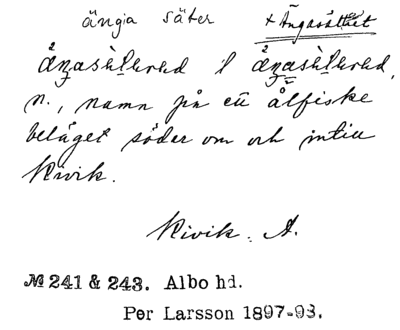 ängia säter + Ängasättet
l
n., namn på ett ålfiske
beläget söder om och intill
Kivik.
Kivik. A.
№ 241 & 243. Albo hd.
Per Larsson 1897-98.